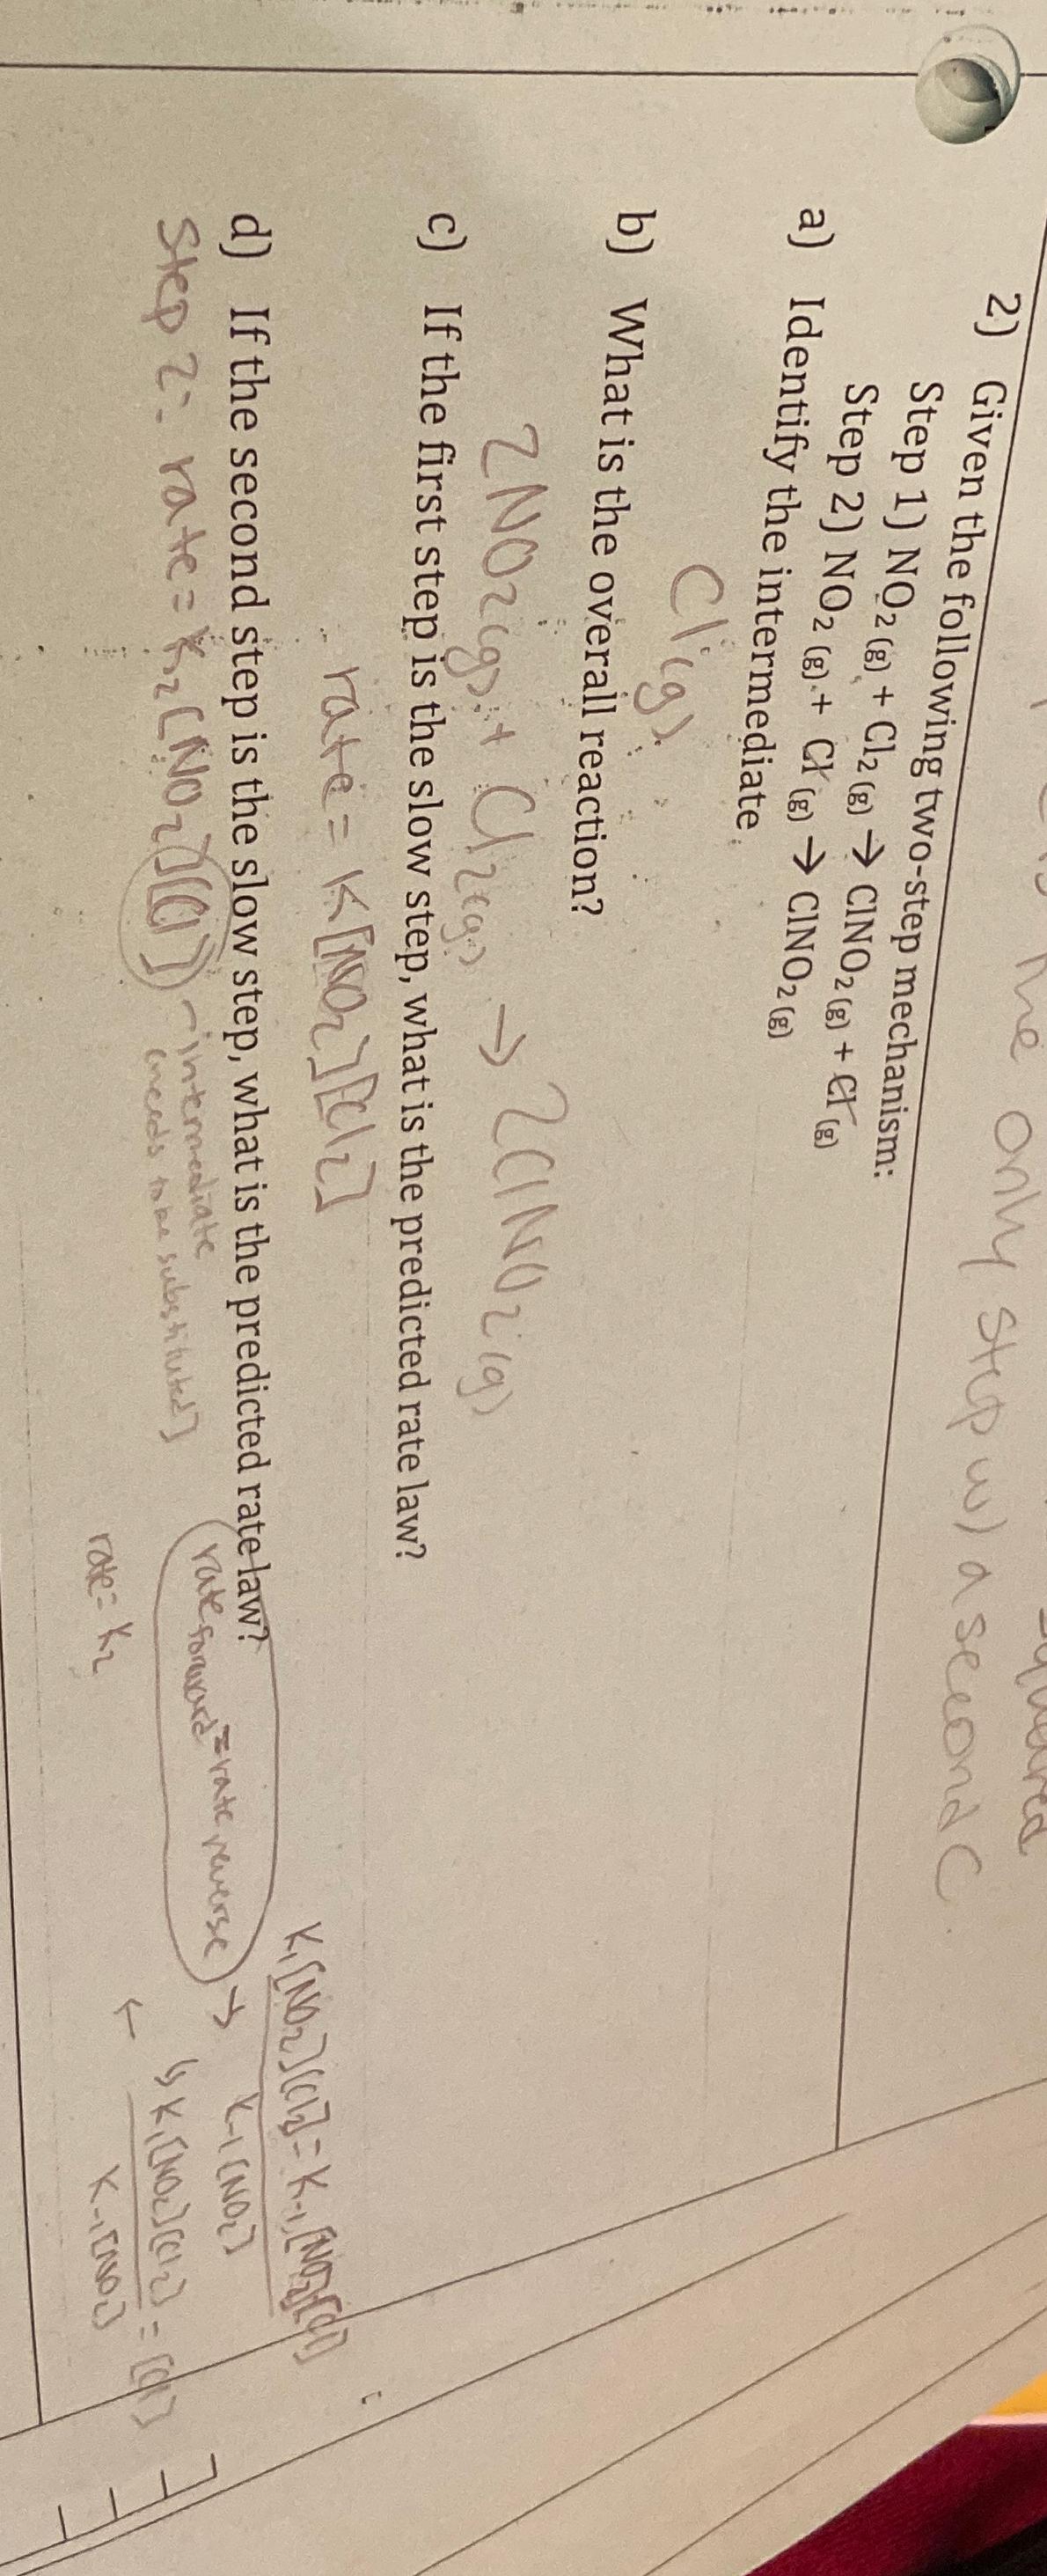 squared
the only step w/ a second C
2) Given the following two-step mechanism:
Step 1) NO₂ (g) + Cl₂ (g) → ClNO₂ (g) + Cl (g)
Step 2) NO₂ (g) + Cl (g) → ClNO₂ (g)
a) Identify the intermediate
Cl (g)
b) What is the overall reaction?
2NO₂(g) + Cl₂(g) → 2ClNO₂(g)
c) If the first step is the slow step, what is the predicted rate law?
rate = K[NO₂][Cl₂]
d) If the second step is the slow step, what is the predicted rate law?
Step 2: rate = K₂[NO₂][Cl] - intermediate
(needs to be substituted)
rate forward = rate reverse →
K₁[NO₂][Cl₂] = K₋₁[NO₂][Cl]
K₋₁[NO₂]
↳ K₁[NO₂][Cl₂] = [Cl]
K₋₁[NO₂]
←
rate = K₂